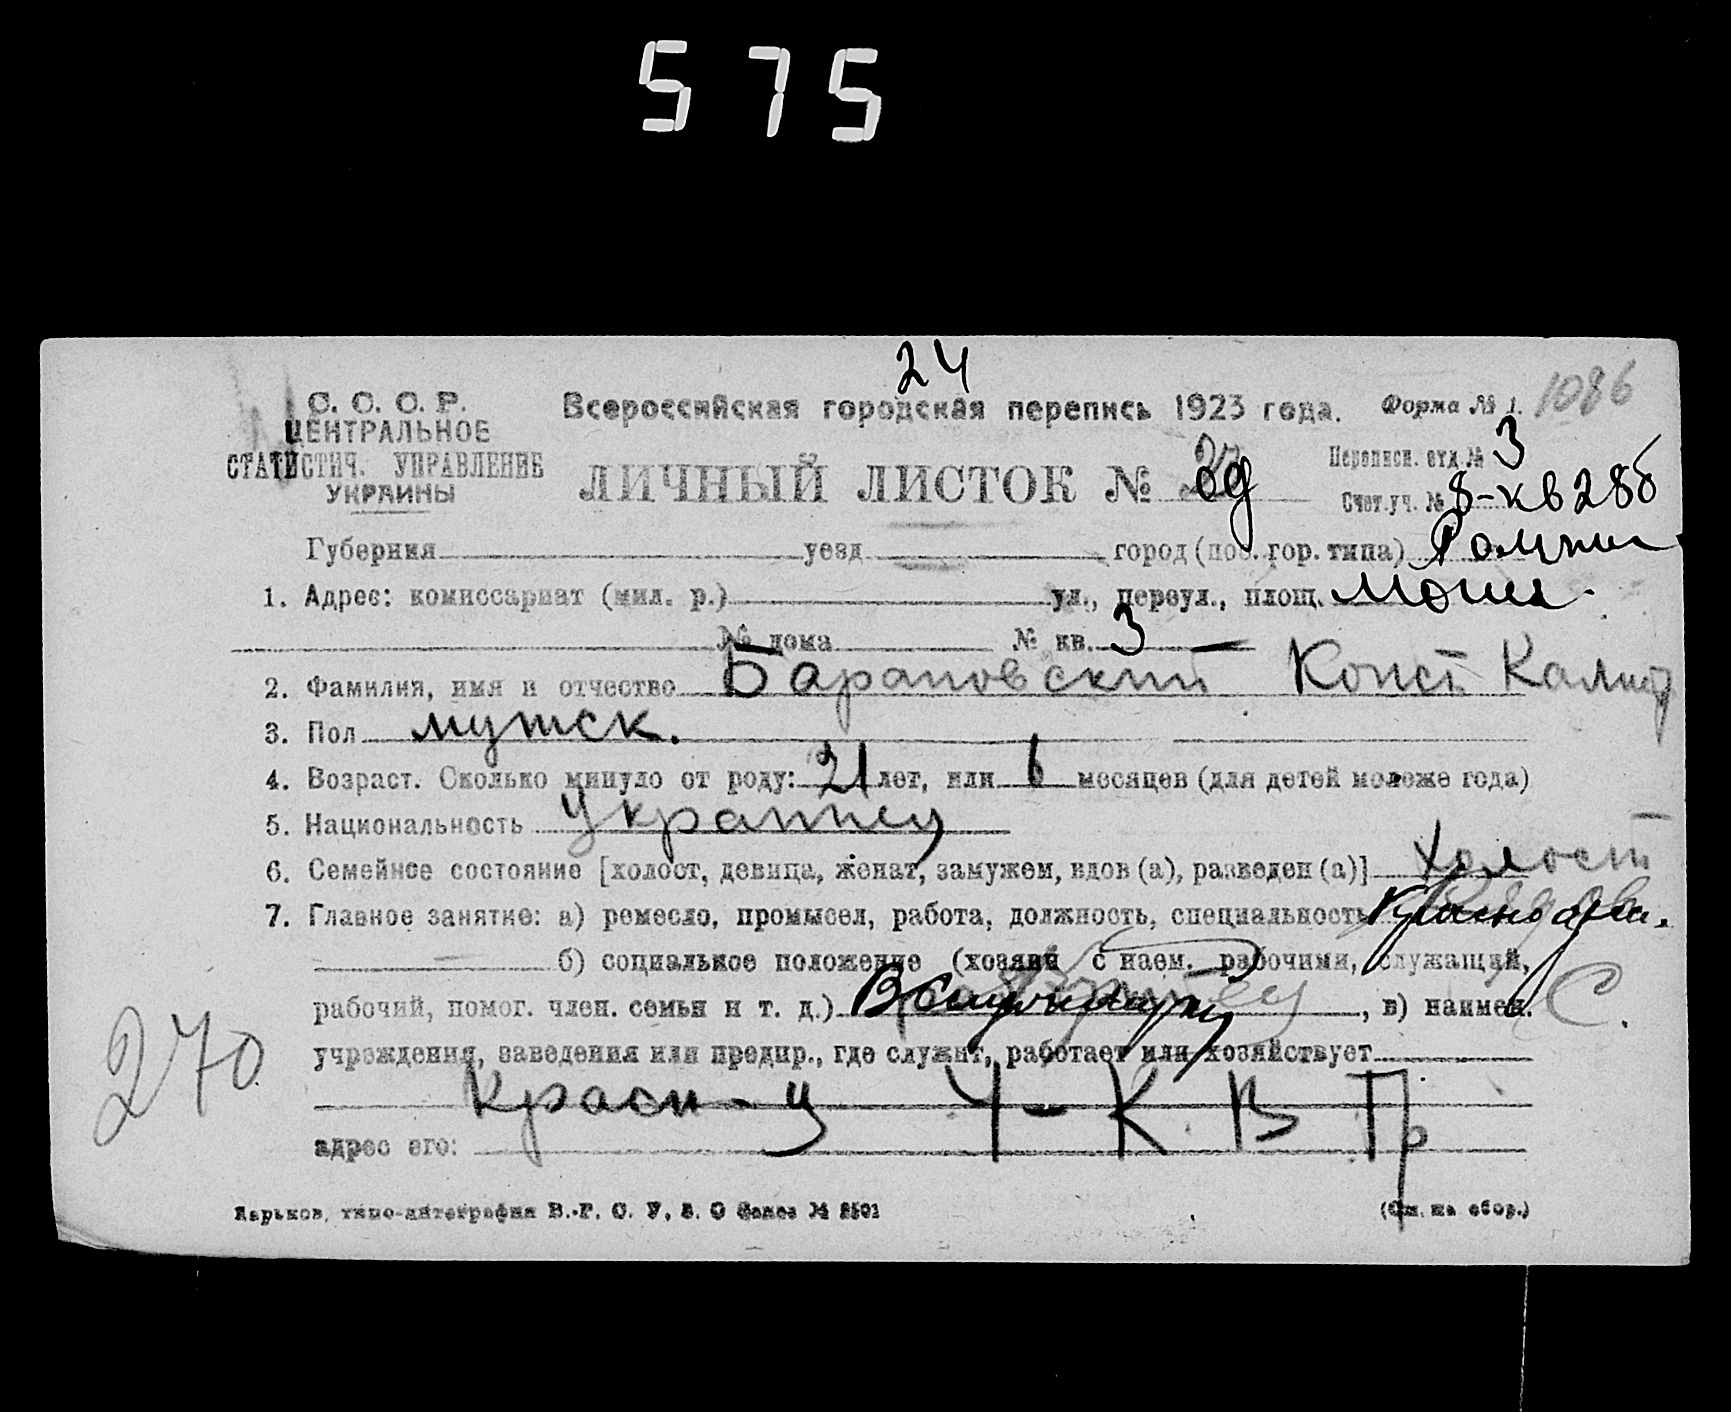 575
24
С. С. С. Р.
ЦЕНТРАЛЬНОЕ
СТАТИСТИЧ. УПРАВЛЕНИЕ
УКРАИНЫ
Всероссийская городская перепись 1923 года.
Форма № 1. 1086
ЛИЧНЫЙ ЛИСТОК №
Переписн. отд № 3
Счет. уч. № 8-кв 28б
Губерния уезд город (пос. гор. типа) Ромны
1. Адрес: комиссариат (мил. р.) ул., переул., площ.
№ дома № кв. 3
2. Фамилия, имя и отчество Барановский Конст
3. Пол мужск.
4. Возраст. Сколько минуло от роду: 21 лет, или 6 месяцев (для детей моложе года)
5. Национальность Украинец
6. Семейное состояние [холост, девица, женат, замужем, вдов (а), разведен (а)] Холост
7. Главное занятие: а) ремесло, промысел, работа, должность, специальность
б) социальное положение (хозяин с наем. рабочими, служащий,
рабочий, помог. член. семьи и т. д.) , в) наимен. С.
270
учреждения, заведения или предпр., где служит, работает или хозяйствует
адрес его:
Харьков, типо-литография В.-Р. О. У, З. О Заказ №
(См. на обор.)